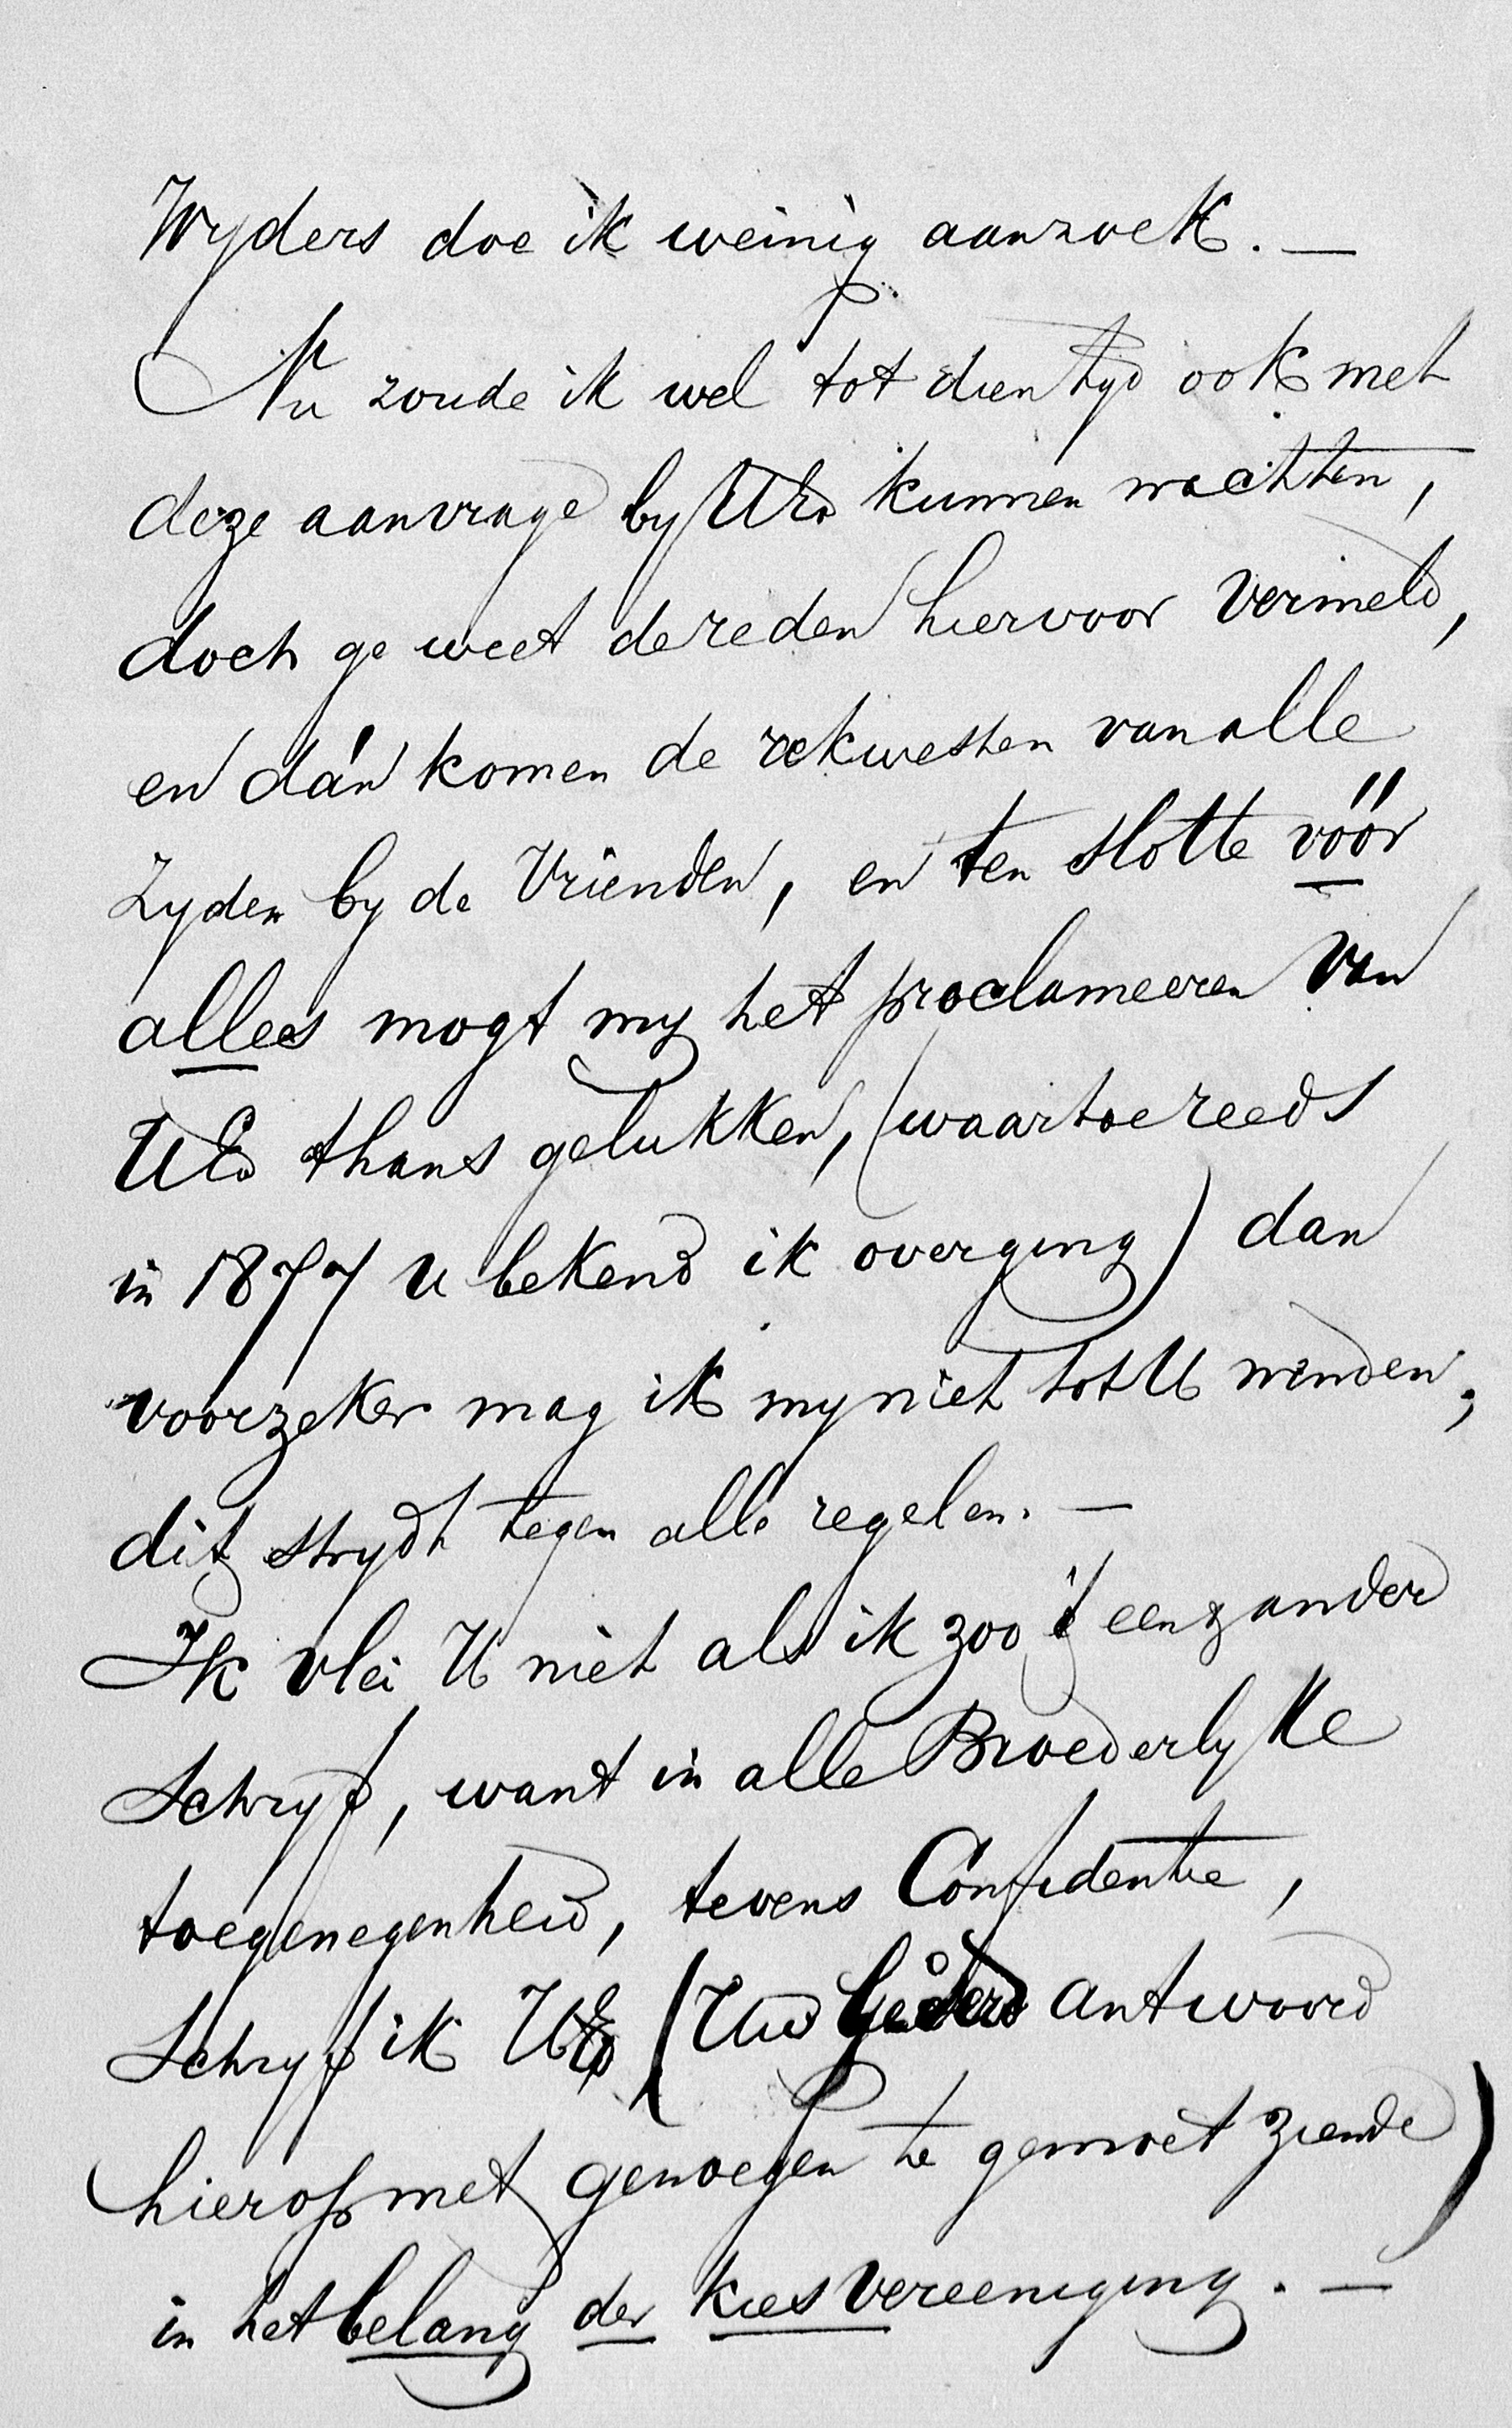 Wyders doe ik weinig aanzoek. —
Nu zoude ik wel tot dien tyd ook met
deze aanvrage by UEd kunnen wachten,
doch ge weet de reden hiervoor vermeld,
en dán komen de rekwesten van alle
Zyden by de Vrienden, en ten slotte vóór
alles mogt my het proclameeren van
UEd thans gelukken, (waartoe reeds
in 1877 u bekend ik overging) dan
voorzeker mag ik my niet tot U wenden;
dit strydt tegen alle regelen. —
Ik vlei U niet als ik zoo 't een & ander
Schryf, want in alle Broederlyke
toegenegenheid, tevens Confidentie,
Schryf ik UEd (Uw antwoord
hierop met genoegen te gemoet ziende)
in het belang der kiesvereeniging. —